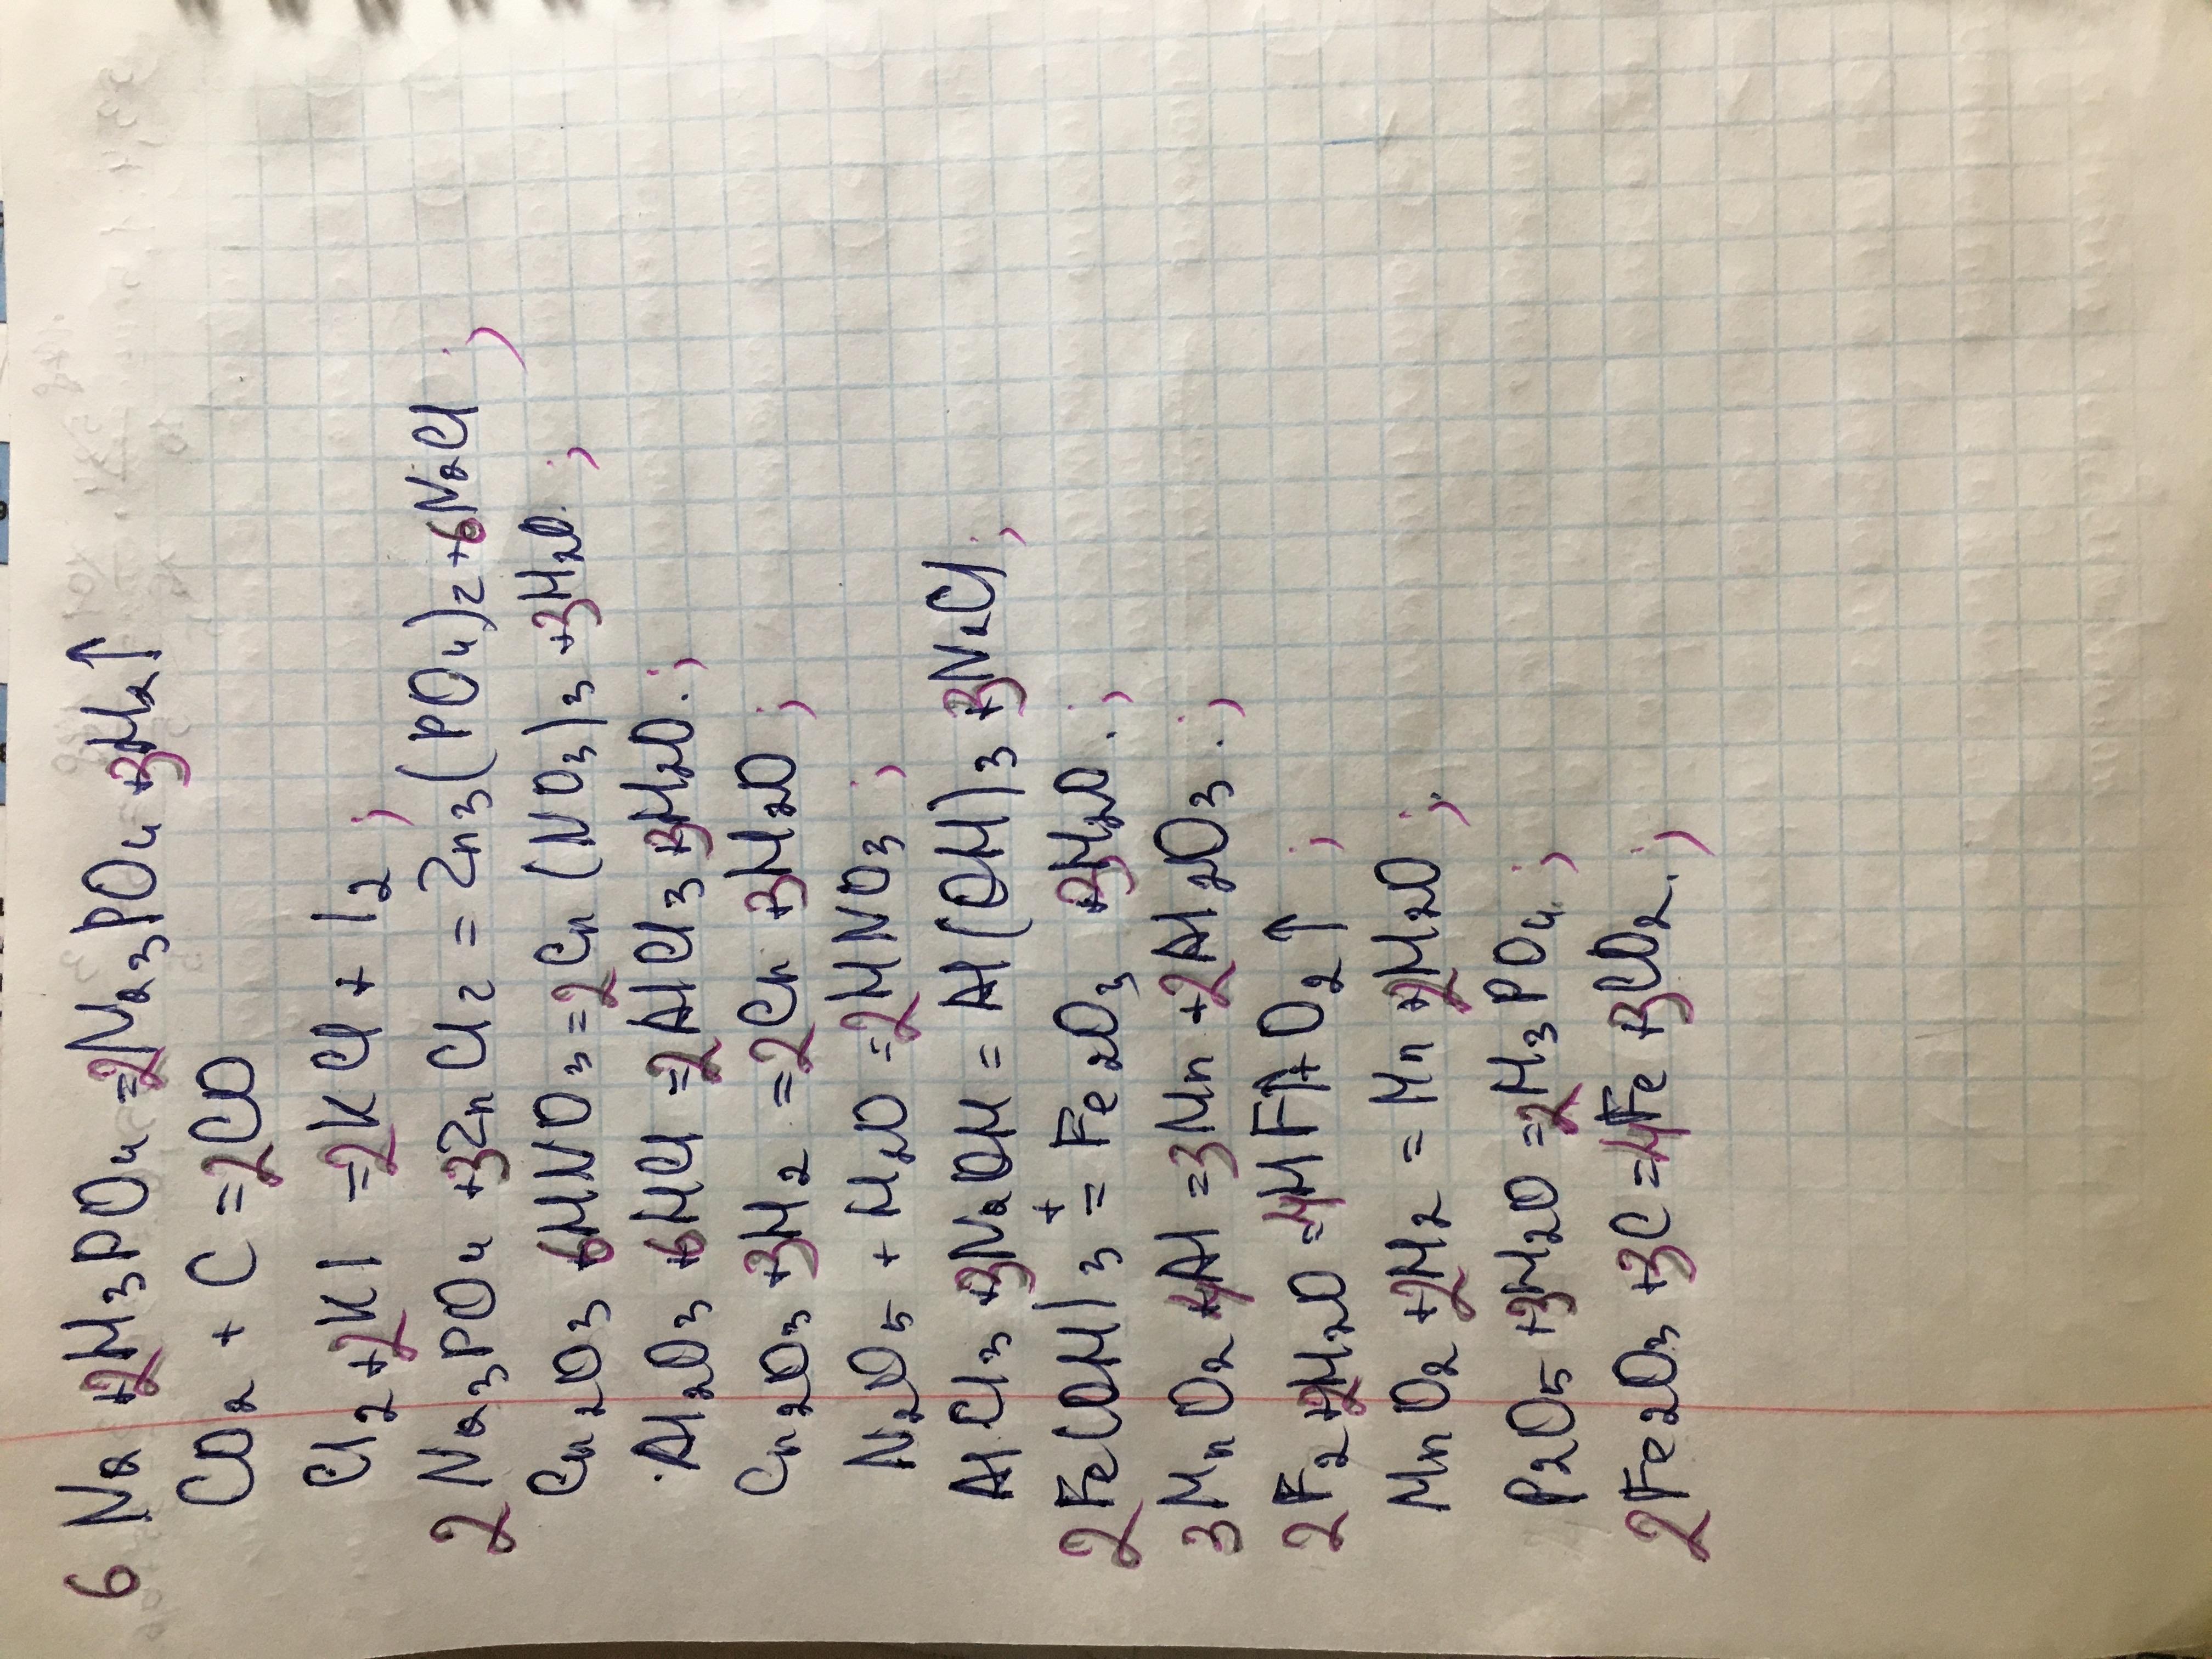 6 Na + 2H3PO4 = 2Na3PO4 + 3H2↑
CO2 + C = 2CO
Cl2 + 2KI = 2KCl + I2;
2 Na3PO4 + 3ZnCl2 = Zn3(PO4)2 + 6NaCl;
Cr2O3 + 6HNO3 = 2Cr(NO3)3 + 3H2O.;
Al2O3 + 6HCl = 2AlCl3 + 3H2O.;
Cr2O3 + 3H2 = 2Cr + 3H2O;
N2O5 + H2O = 2HNO3;
AlCl3 + 3NaOH = Al(OH)3 + 3NaCl;
2Fe(OH)3 = Fe2O3 + 3H2O.;
3MnO2 + 4Al = 3Mn + 2Al2O3.;
2F2 + 2H2O = 4HF↑ + O2↑;
MnO2 + 2H2 = Mn + 2H2O;
P2O5 + 3H2O = 2H3PO4;
2Fe2O3 + 3C = 4Fe + 3CO2.;